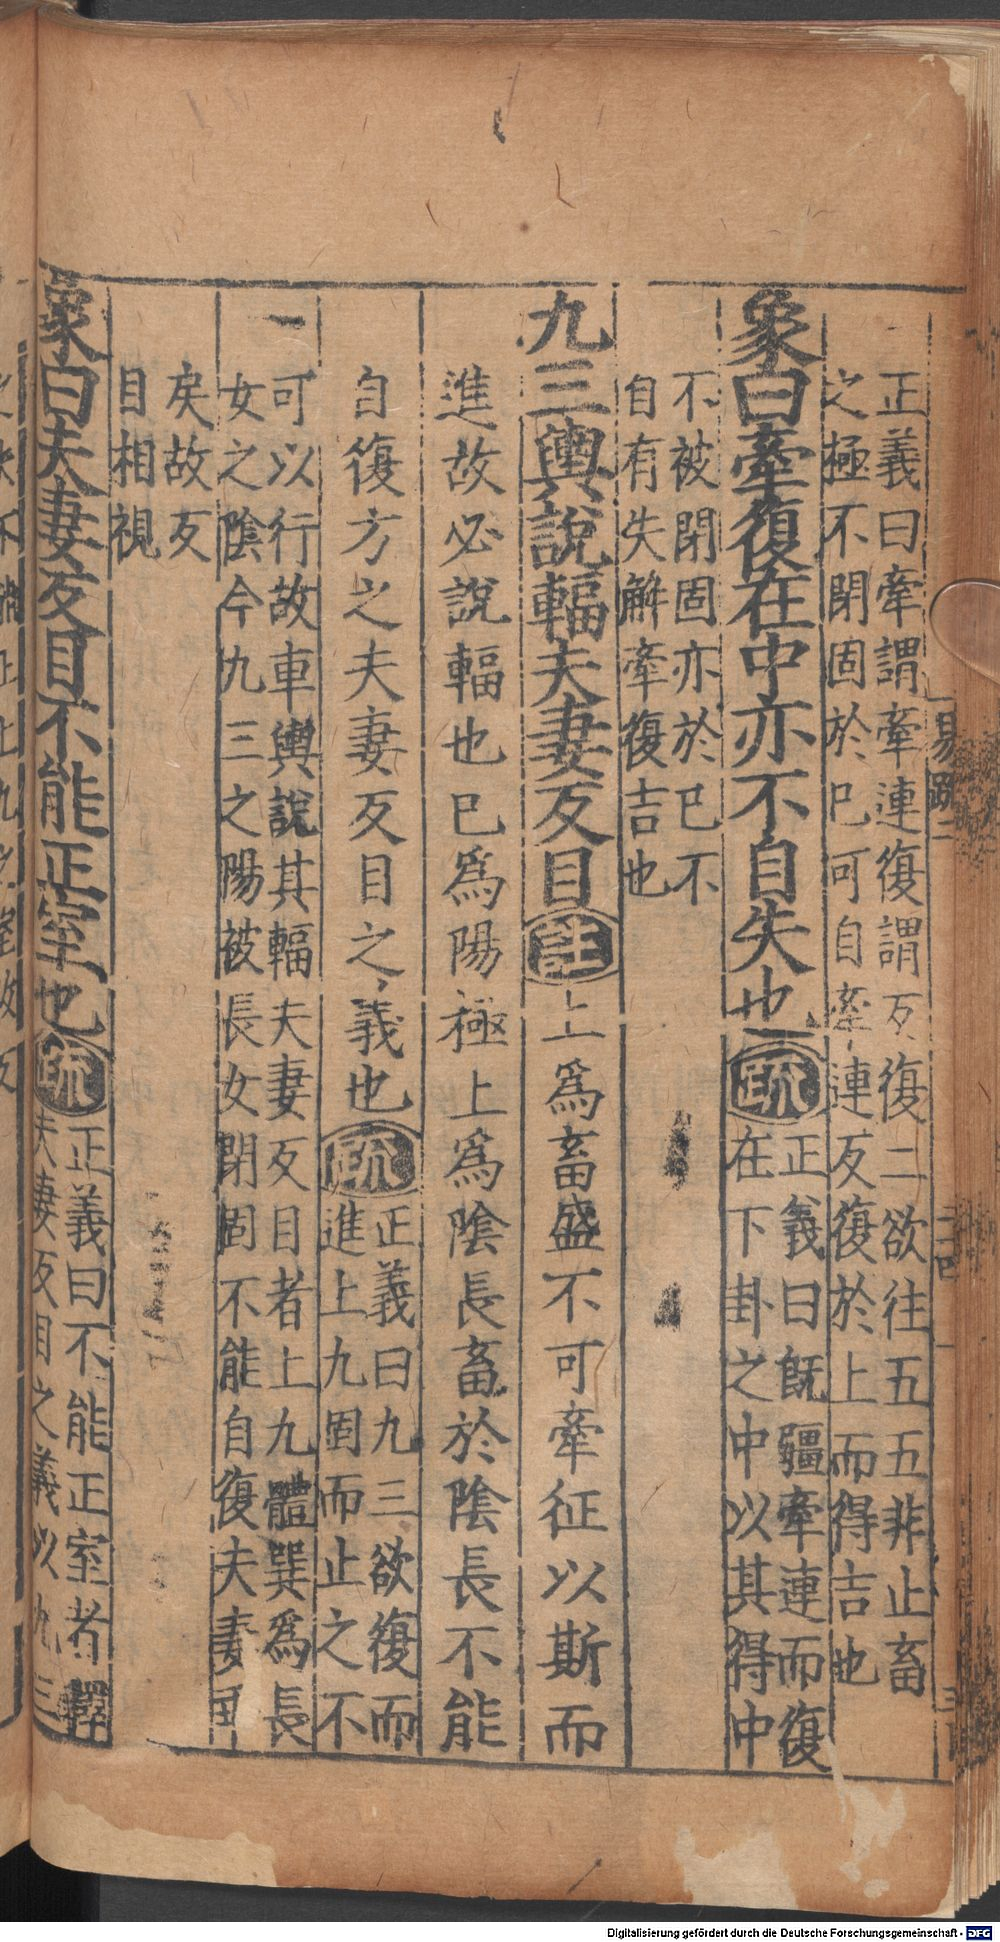 正義曰牽謂牽連復謂反復二欲往五五非止畜
之極不閉固於巳可自牽連反復於上而得吉也
象曰牽復在中亦不自失也
疏
正義曰旣彊牽連而復
在下卦之中以其得中
不被閉固亦於巳不
自有失解牽復吉也
九三輿說輻夫妻反目註上爲畜盛不可牽征以斯而
進故必說輻也巳爲陽極上爲陰長畜於陰長不能
自復方之夫妻反目之義也
疏
正義曰九三欲復而
進上九固而止之不
可以行故車輿說其輻夫妻反目者上九體巽爲長
女之陰今九三之陽被長女閉固不能自復夫妻
矣故反
目相視
象曰夫妻反目不能正室也
疏
正義曰不能正室者釋
夫妻反目之義以九三
易疏二
Digitalisierung gefördert durch die Deutsche Forschungsgemeinschaft - DFG